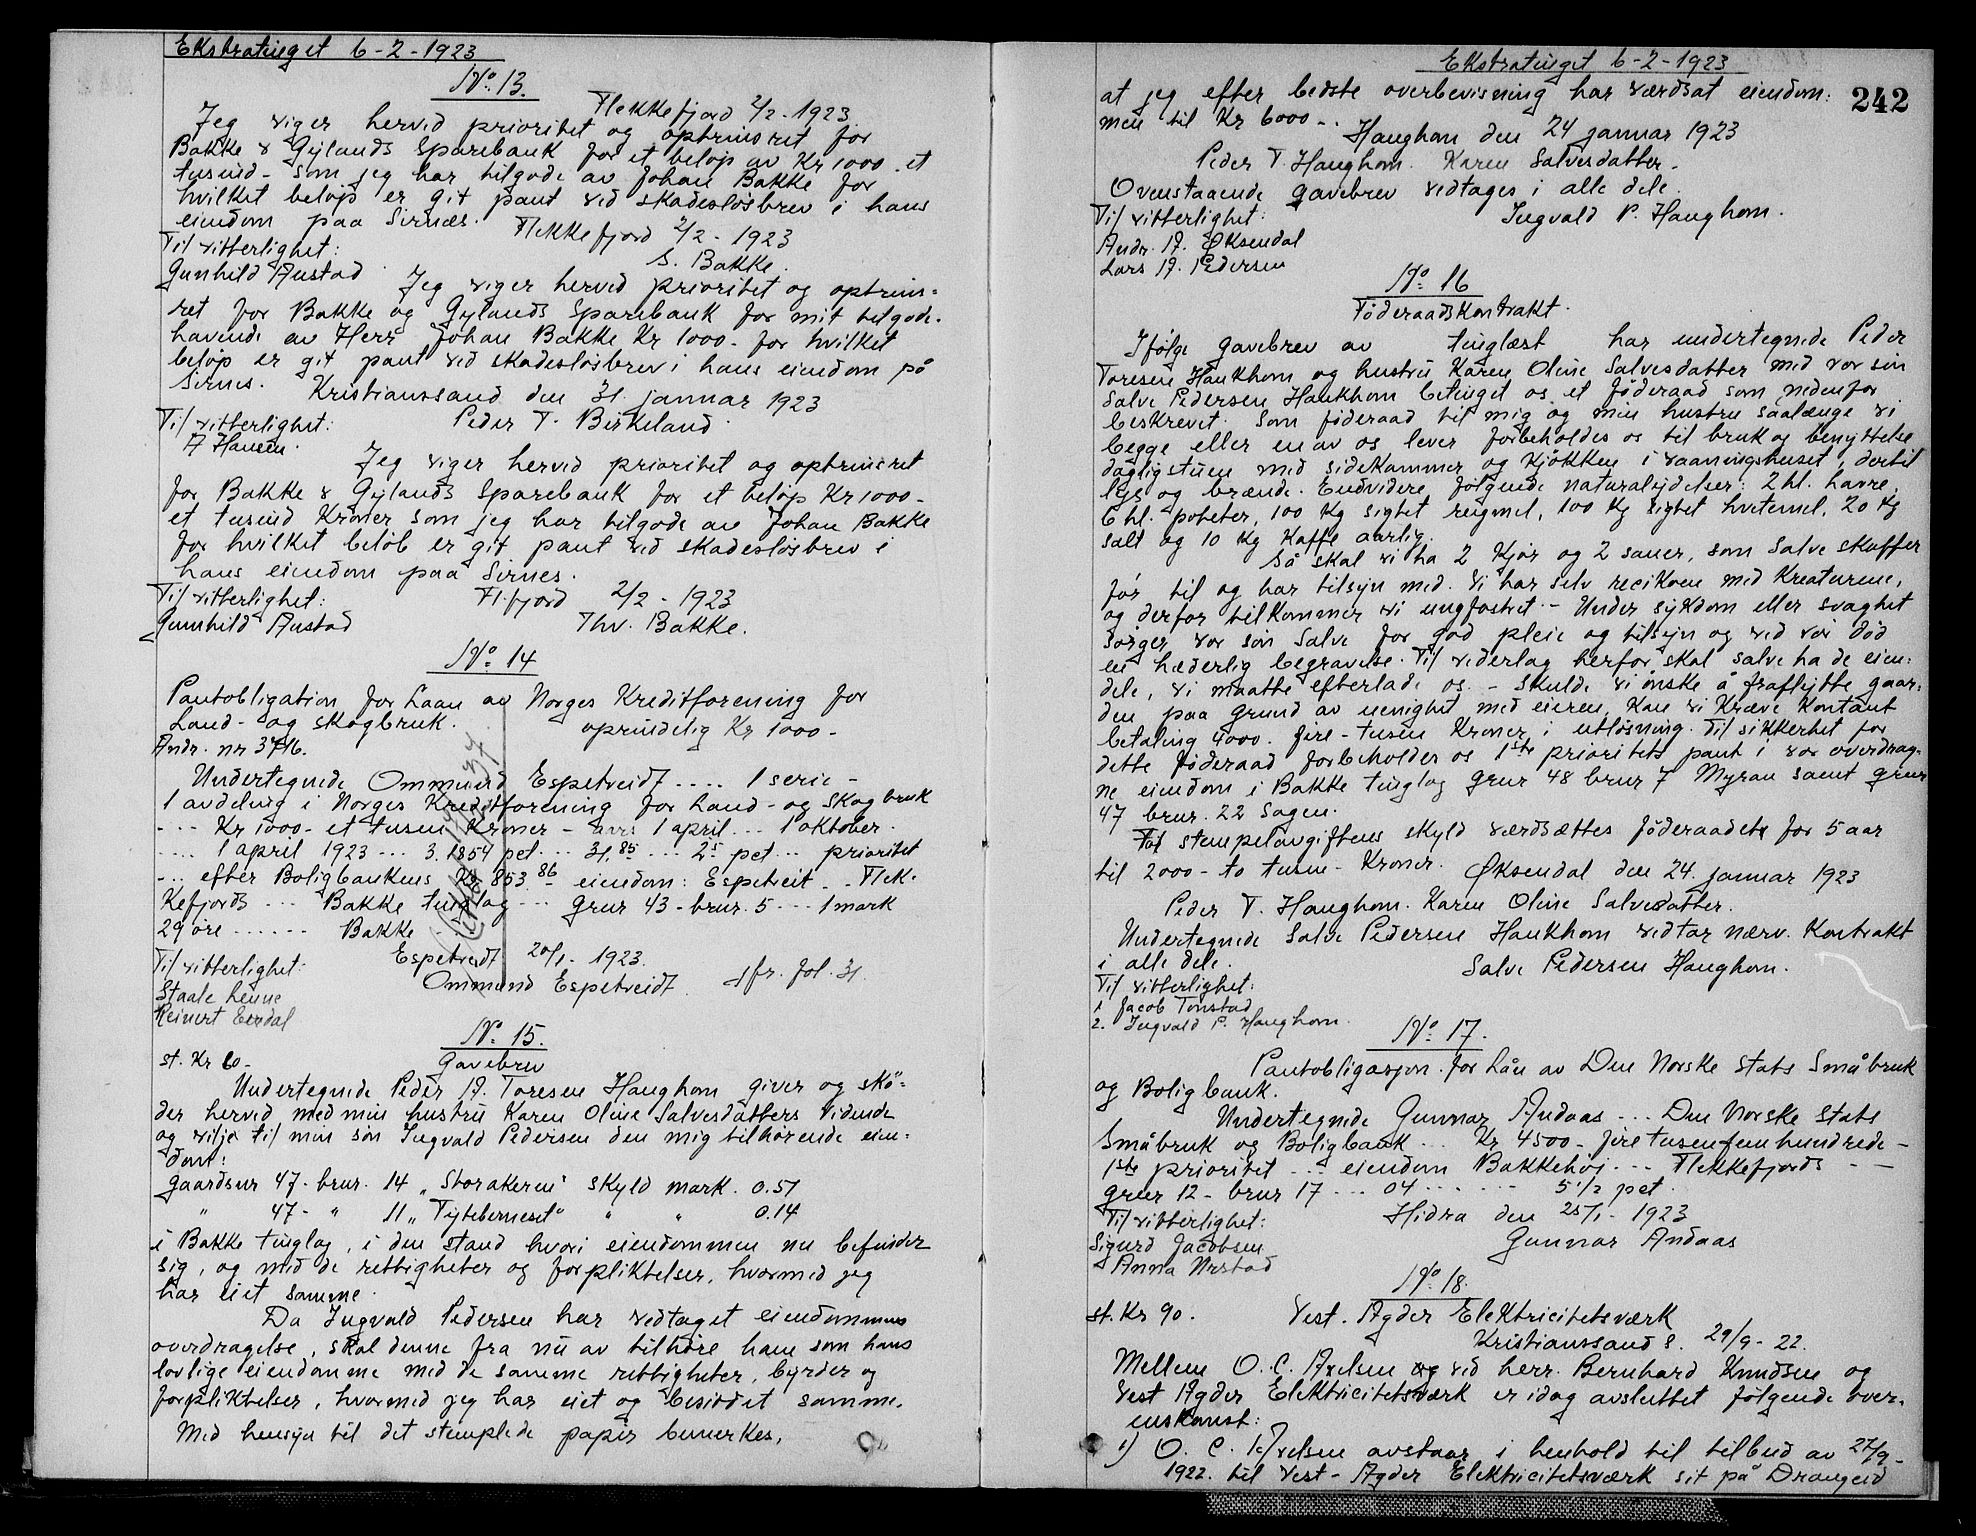 Ekstratinget 6-2-1923
No. 13.
Flekkefjord 2/2-1923.
Jeg viger hervid prioritet og optrinsret for
Bakke & Gylands Sparebank for et beløp av Kr 1000 - et
tusind - som jeg har tilgode av Johan Bakke for
hvilket beløp er git pant ved skadesløsbrev i hans
eiendom paa Sirnæs. Flekkefjord 2/2 - 1923
Til vitterlighet: S. Bakke.
Gunhild Austad
Jeg viger hervid prioritet og optrins-
ret for Bakke og Gylands Sparebank for mit tilgode-
havende av Herr Johan Bakke Kr 1000 - for hvilket
beløp er git pant ved skadesløsbrev i hans eiendom på
Sirnes. Kristianssand den 31. januar 1923
Til vitterlighet: Peder T. Birkeland.
A Hansen.
Jeg viger hervid prioritet og optrinsret
for Bakke & Gylands Sparebank for et beløp Kr 1000 -
et tusind Kroner som jeg har tilgode av Johan Bakke
for hvilket beløb er git pant ved skadesløsbrev i
hans eiendom paa Sirnes.
Til vitterlighet: Fl.fjord 2/2 - 1923
Gunhild Austad Thv. Bakke.
No. 14
Pantobligation for Laan av Norges Kreditforening for
Land- og skogbruk. oprindelig Kr 1000 -
Andr. nr 3716.
Undertegnede Ommund Espetveidt .... 1 serie -
1 avdeling i Norges Kreditforening for Land- og Skogbruk
--- Kr 1000 - et tusen Kroner - 1 april ... 1 oktober.
.... 1 april 1923 ... 3.1854 pct ... 31.85 ... 25 pct ... prioritet
--- efter Boligbankens Kr 853.86 - eiendom: Espetveit - - Flek-
kefjords ... Bakke tinglag ... Grnr 43 - brnr. 5 ... 1 mark
29 øre ...... Bakke
Espetveidt 20/1 - 1923.
Til vitterlighet: Ommund Espetveidt. Jfr. fol. 31.
Staale Lenne
Reinert Eerdal
No. 15.
st. Kr 60 - Gavebrev
Undertegnede Peder A. Toresen Haughom giver og skö-
der hervid med min hustru Karen Oline Salvesdatters Vidende
og vilje til min søn Ingvald Pedersen den mig tilhörende eien-
dom:
Gaardsnr 47 - brnr. 14 „Storakeren" skyld mark. 0.51
" 47 - " 11 „Tyteberneset" " " 0.14
i Bakke tinglag, i den stand hvori eiendommen nu befinder
sig, og med de rettigheter og forpliktelser, hvormed jeg
har eiet samme.
Da Ingvald Pedersen har vedtaget eiendommens
overdragelse, skal denne fra nu av tilhöre ham som hans
lovlige eiendomme med de samme rettigheter, byrder og
forpliktelser, hvormed jeg har eiet og besiddet samme.
Med hensyn til det stemplede papir bemerkes,
Ekstratinget 6-2-1923
242
at jeg efter bedste overbevisning har værdsat eiendom-
men til Kr 6000 -.
Haughom den 24 januar 1923
Peder T. Haughom. Karen Salvesdatter.
Ovenstaaende gavebrev vedtages i alle dele.
Til vitterlighet: Ingvald P. Haughom.
Andr. A. Øksendal
Lars A. Pedersen
No. 16
Föderaadskontrakt.
Ifölge gavebrev av tinglæst har undertegnede Peder
Toresen Haukhom og hustru Karen Oline Salvesdatter med vor sön
Salve Pedersen Haukhom betinget os et föderaad som nedenfor
beskrevet. Som föderaad til mig og min hustru saalænge vi
begge eller en av os lever forbeholdes os til bruk og benyttelse
dagligstuen med sidekammer og kjökken i vaaningshuset, dertil
lys og brænde. Endvidere fölgende naturalydelser: 2 hl. havre,
6 hl. poteter, 100 kg sigtet rugmel, 100 kg sigtet hvetemel, 20 kg
salt og 10 kg Kaffe aarlig.
Så skal vi ha 2 Kjör og 2 sauer, som Salve skaffer
fòr til og har tilsyn med. Vi har selv recikoen med Kreaturene,
og derfor tilkommer vi ungfostret. - Under sykdom eller svaghet
sörger vor sön Salve for god pleie og tilsyn og ved vor död
en hæderlig begravelse. Til vederlag herfor skal Salve ha de eien-
dele, vi maatte efterlade os. - Skulde vi önske å fraflytte gaar-
den paa grund av uenighet med eieren, kan vi Kræve Kontant
betaling 4000. fire - tusen Kroner i utlösning. Til sikkerhet for
dette föderaad forbeholdes os 1ste prioritets pant i vor overdrag-
ne eiendom i Bakke tinglag Grnr 48 brnr 7 Myran samt grnr
47 brnr. 22 Sagen.
For stempelavgiftens skyld værdsættes föderaadets for 5 aar
til 2000 - to tusen - Kroner. Øksendal den 24. januar 1923
Peder T. Haughom. Karen Oline Salvesdatter.
Undertegnede Salve Pedersen Haukhom vedtar nærv. Kontrakt
i alle dele. Salve Pedersen Haughom.
Til vitterlighet:
1 Jacob Tonstad
2. Ingvald P. Haughom.
No. 17.
Pantobligasjon for lån av Den Norske Stats Småbruk
og Boligbank.
Undertegnede Gunnar Andaas ... Den Norske Stats
Småbruk og Boligbank ... Kr 4500 - fire tusen fem hundrede -
1ste prioritet ... eiendom Bakkehöi ... Flekkefjords - -
Grnr 12 - brnr 17 ... 04 ...... 5 1/2 pct.
Til vitterlighet: Hidra den 25/1 - 1923
Sigurd Jacobsen Gunnar Andaas
Anna Urstad
No. 18.
st. Kr 90. Vest-Agder Elektricitetsværk
Kristianssand S. 29/9 - 22.
Mellem O. C. Axelsen og ved herr. Bernhard Knudsen og
Vest Agder Elektricitetsværk er idag avsluttet følgende over-
enskomst:
1) O. C. Axelsen avstaar i henhold til tilbud av 27/9 -
1922. til Vest-Agder Elektricitetsværk sit på Drangeid